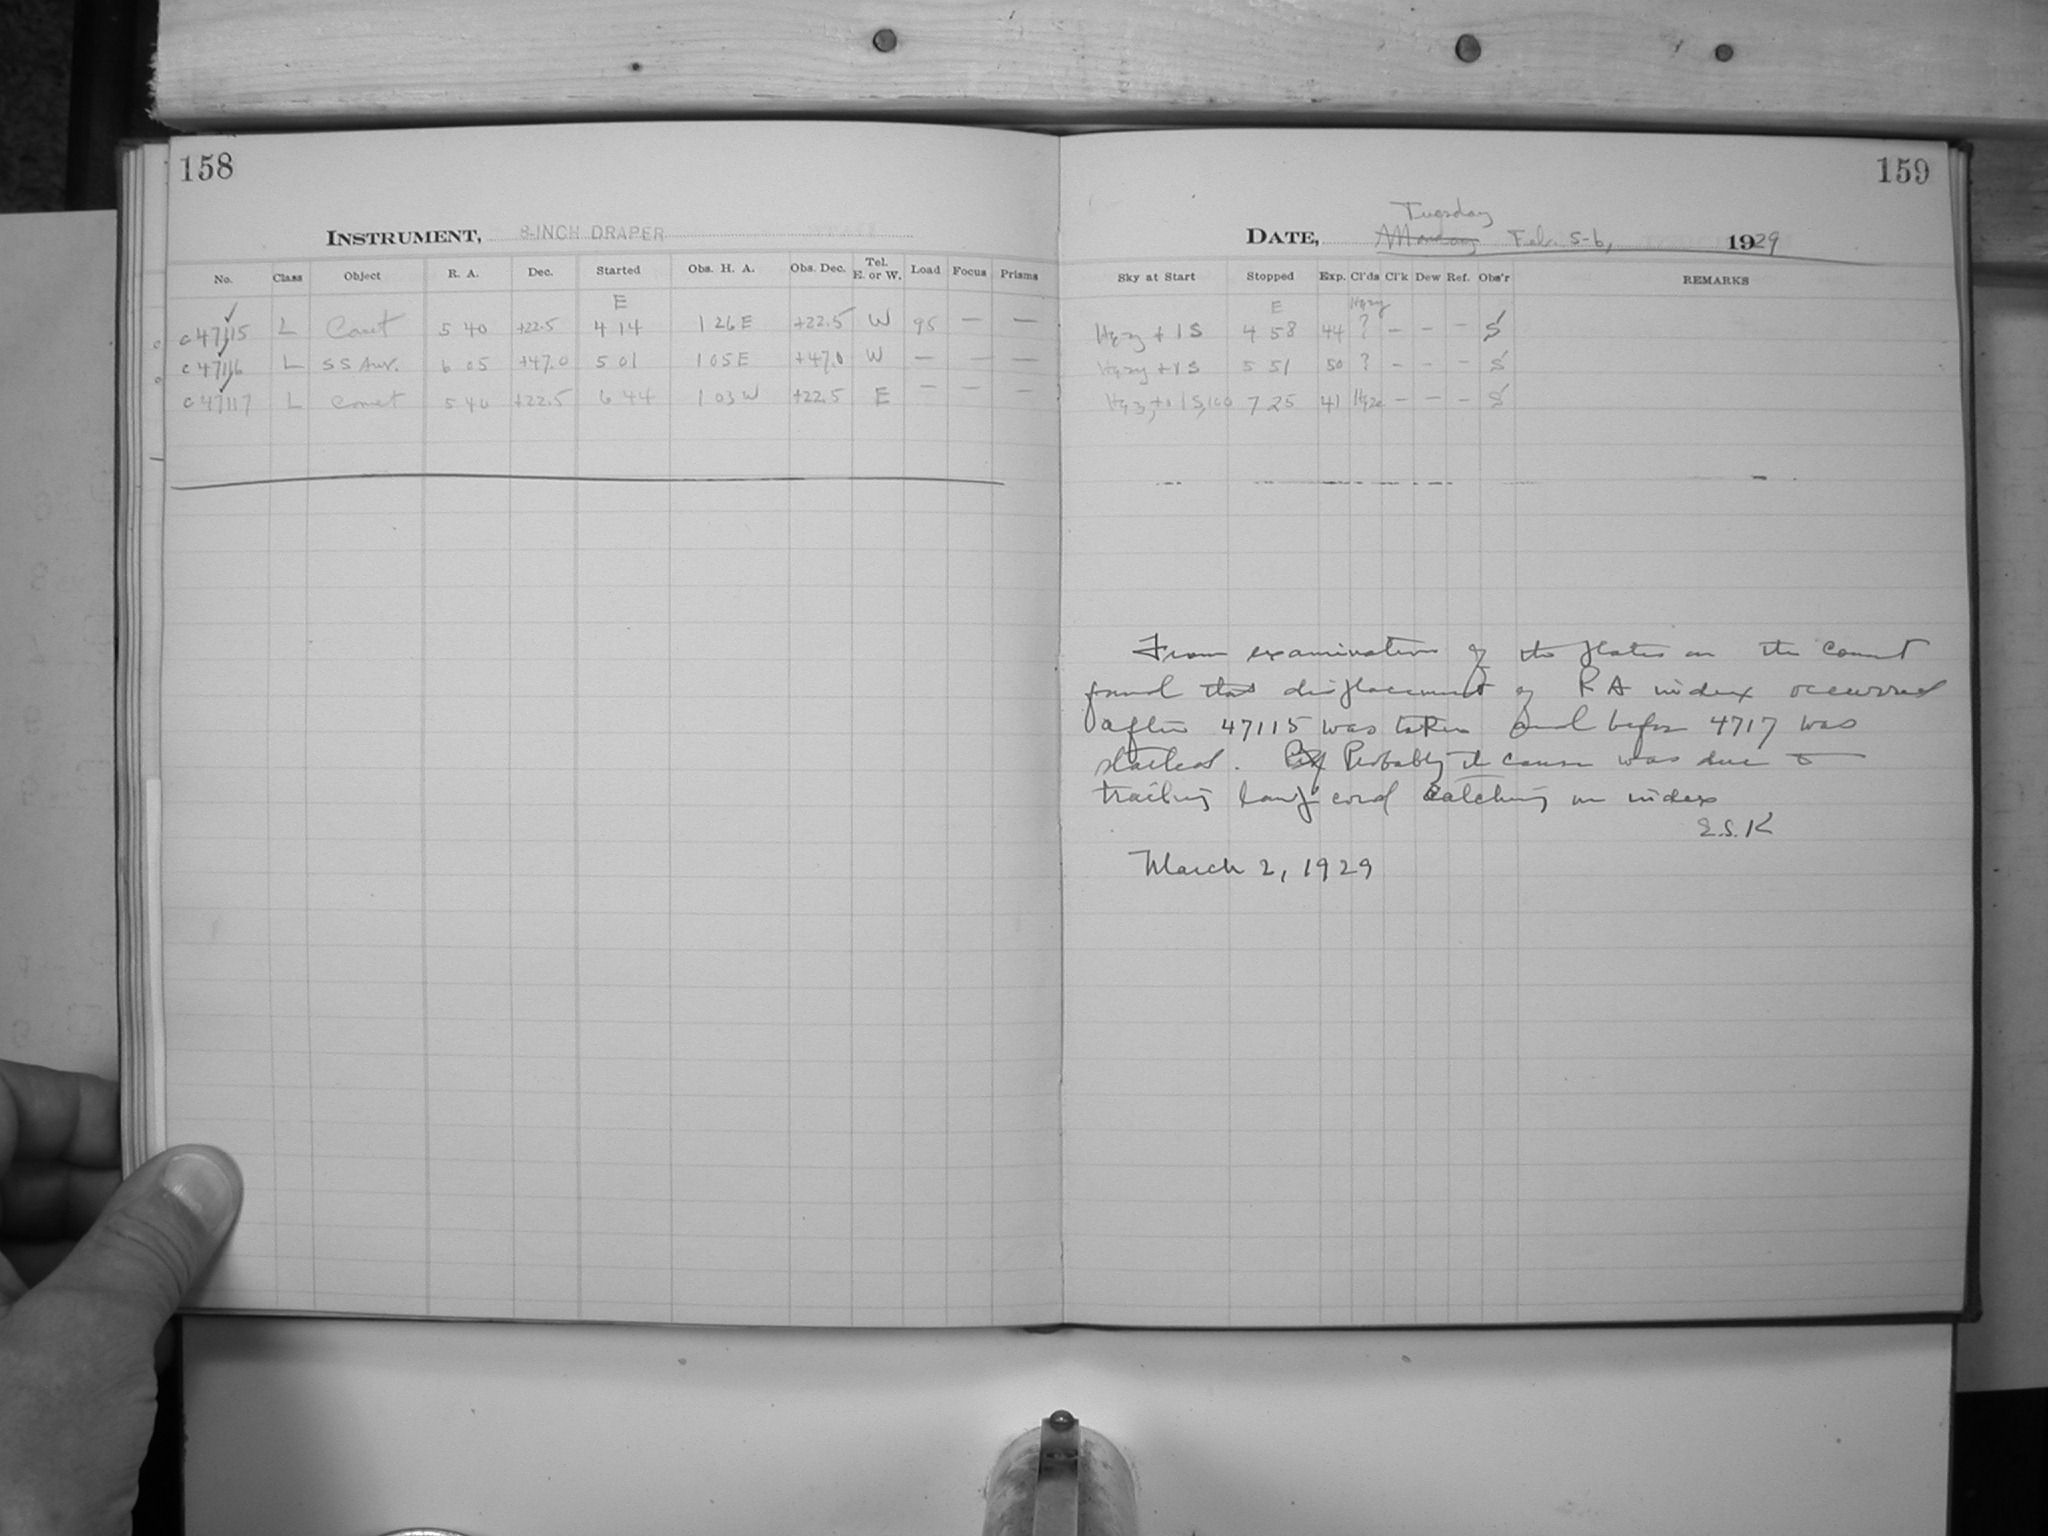 158
INSTRUMENT, 8-INCH DRAPER
No. Class Object R. A. Dec. Started Obs. H. A. Obs. Dec. Tel. E. or W. Load Focus Prisms
E
c47115 L Comet 5 40 +22.5 4 14 1 26 E +22.5 W 95 — —
c47116 L SS Aur. 6 05 +47.0 5 01 1 05 E +47.0 W — — —
c47117 L Comet 5 40 +22.5 6 44 1 03 W +22.5 E — — —
159
Tuesday
DATE, Monday Feb. 5-6, 1929
Sky at Start Stopped Exp. Cl'ds Cl'k Dew Ref. Obs'r REMARKS
E Hazy
Hazy + 1 S 4 58 44 ? — — — S
Hazy + 1 S 5 51 50 ? — — — S
7 25 41 Haze — — — S
From examination of the plates on the Comet
found that displacement of R A index occurred
after 47115 was taken and before 4717 was
started. Probably the cause was due to
trailing lamp cord catching on index
E.S.K
March 2, 1929